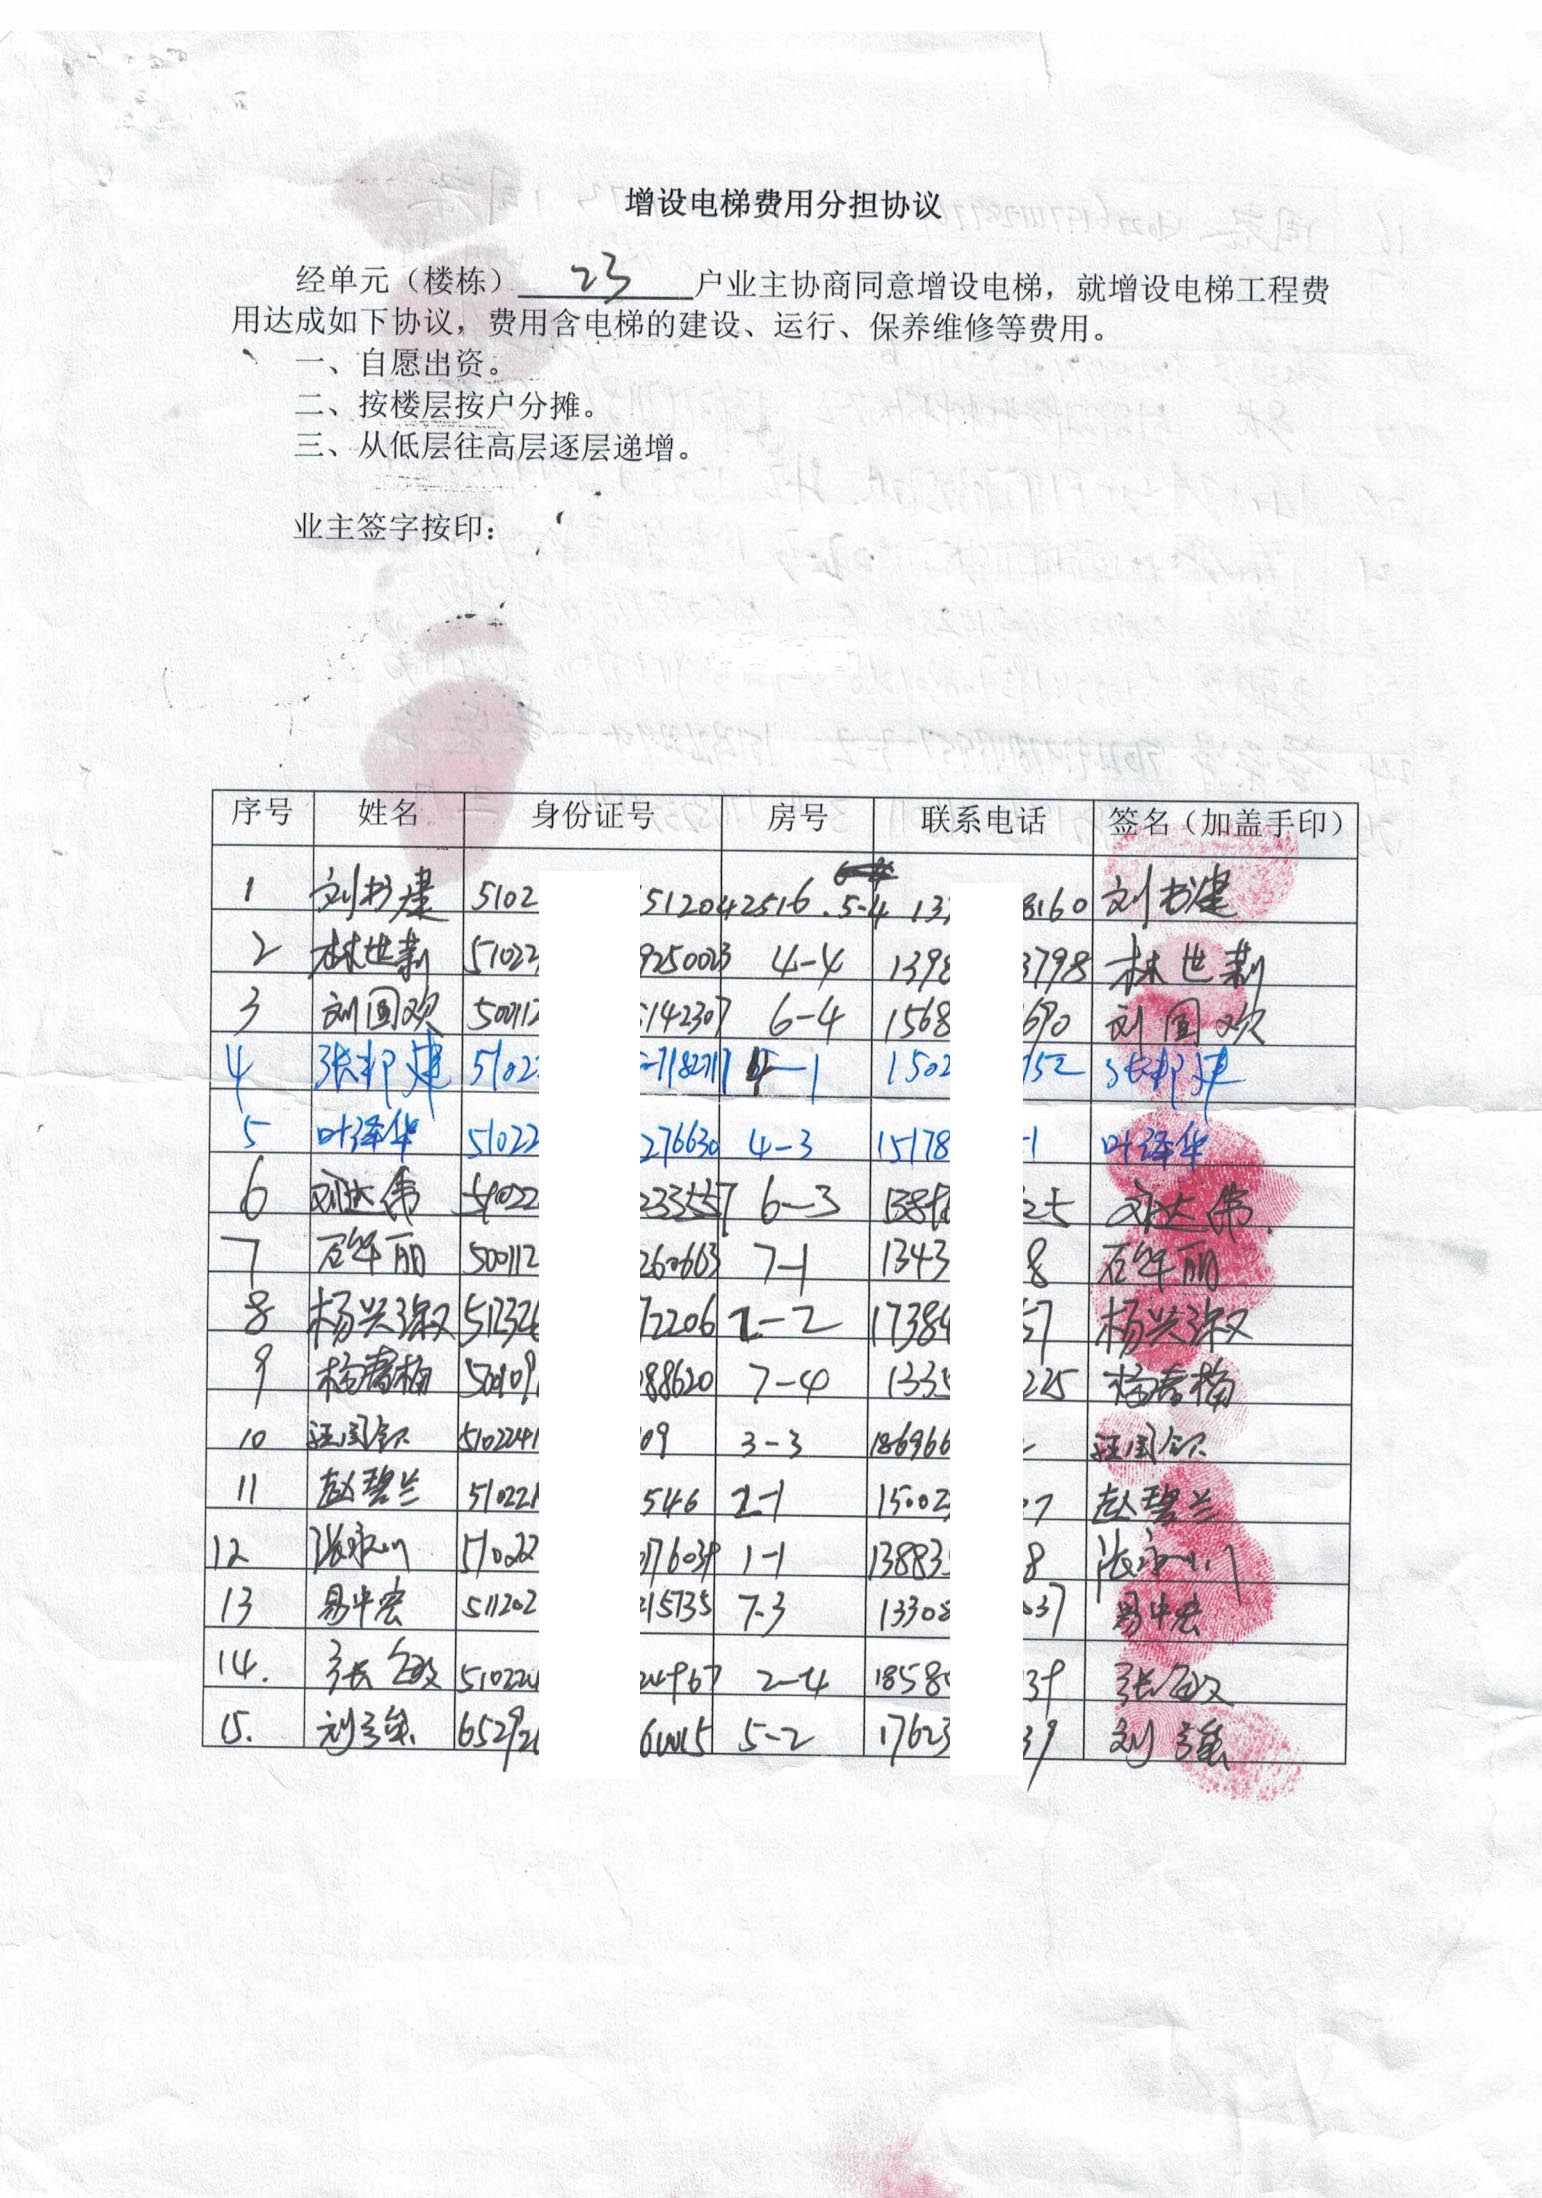 增设电梯费用分担协议
经单元（楼栋） 23 户业主协商同意增设电梯，就增设电梯工程费
用达成如下协议，费用含电梯的建设、运行、保养维修等费用。
一、自愿出资。
二、按楼层按户分摊。
三、从低层往高层逐层递增。
业主签字按印：
序号 姓名 身份证号 房号 联系电话 签名（加盖手印）
1 刘书建 5102 512042516 5-4 13 8160 刘书建
2 林世莉 51022 9250023 4-4 1398 3798 林世莉
3 刘国欢 500112 142307 6-4 1568 690 刘国欢
4 张邦建 5102 7182711 -1 1502 752 张邦建
5 叶泽华 51022 276630 4-3 15178 1 叶泽华
6 刘达伟 51022 233557 6-3 138 25 刘达伟
7 石华丽 500112 260663 7-1 1343 8 石华丽
8 杨兴淑 512326 72206 -2 1738 57 杨兴淑
9 杨春梅 500109 088620 7-4 133 225 杨春梅
10 汪国 5102241 09 3-3 186966 汪国
11 赵碧兰 510221 546 2-1 15002 07 赵碧兰
12 张永川 51022 176039 1-1 13883 8 张永川
13 易中宏 511202 215735 7-3 13308 037 易中宏
14. 张敏 510224 24967 2-4 1858 39 张敏
15. 刘 6529 15 5-2 17623 39 刘